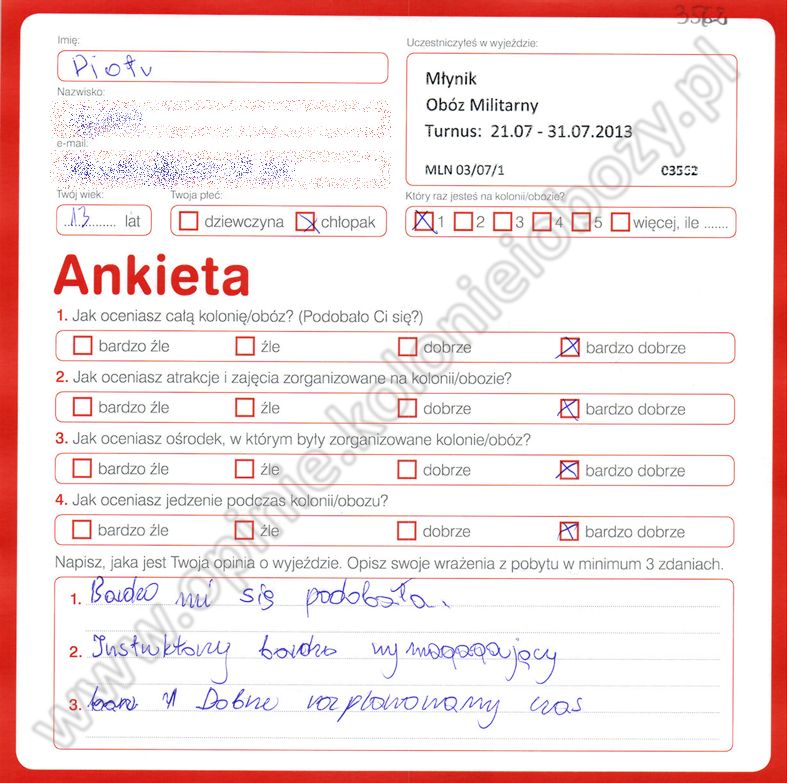 3562
Imię:
Uczestniczyłeś w wyjeździe:
Piotr
Młynik
Obóz Militarny
Turnus: 21.07 - 31.07.2013
MLN 03/07/1 03562
Nazwisko:
e-mail:
Twój wiek:
Twoja płeć:
Który raz jesteś na kolonii/obozie?
13 lat
dziewczyna chłopak
1 2 3 4 5 więcej, ile .......
Ankieta
1. Jak oceniasz całą kolonię/obóz? (Podobało Ci się?)
bardzo źle źle dobrze bardzo dobrze
2. Jak oceniasz atrakcje i zajęcia zorganizowane na kolonii/obozie?
bardzo źle źle dobrze bardzo dobrze
3. Jak oceniasz ośrodek, w którym były zorganizowane kolonie/obóz?
bardzo źle źle dobrze bardzo dobrze
4. Jak oceniasz jedzenie podczas kolonii/obozu?
bardzo źle źle dobrze bardzo dobrze
Napisz, jaka jest Twoja opinia o wyjeździe. Opisz swoje wrażenia z pobytu w minimum 3 zdaniach.
1. Bardzo mi się podobała.
2. Instuktorzy bardzo wymagający
3. Dobrze rozplanowany czas
www.opinie.kolonieiobozy.pl